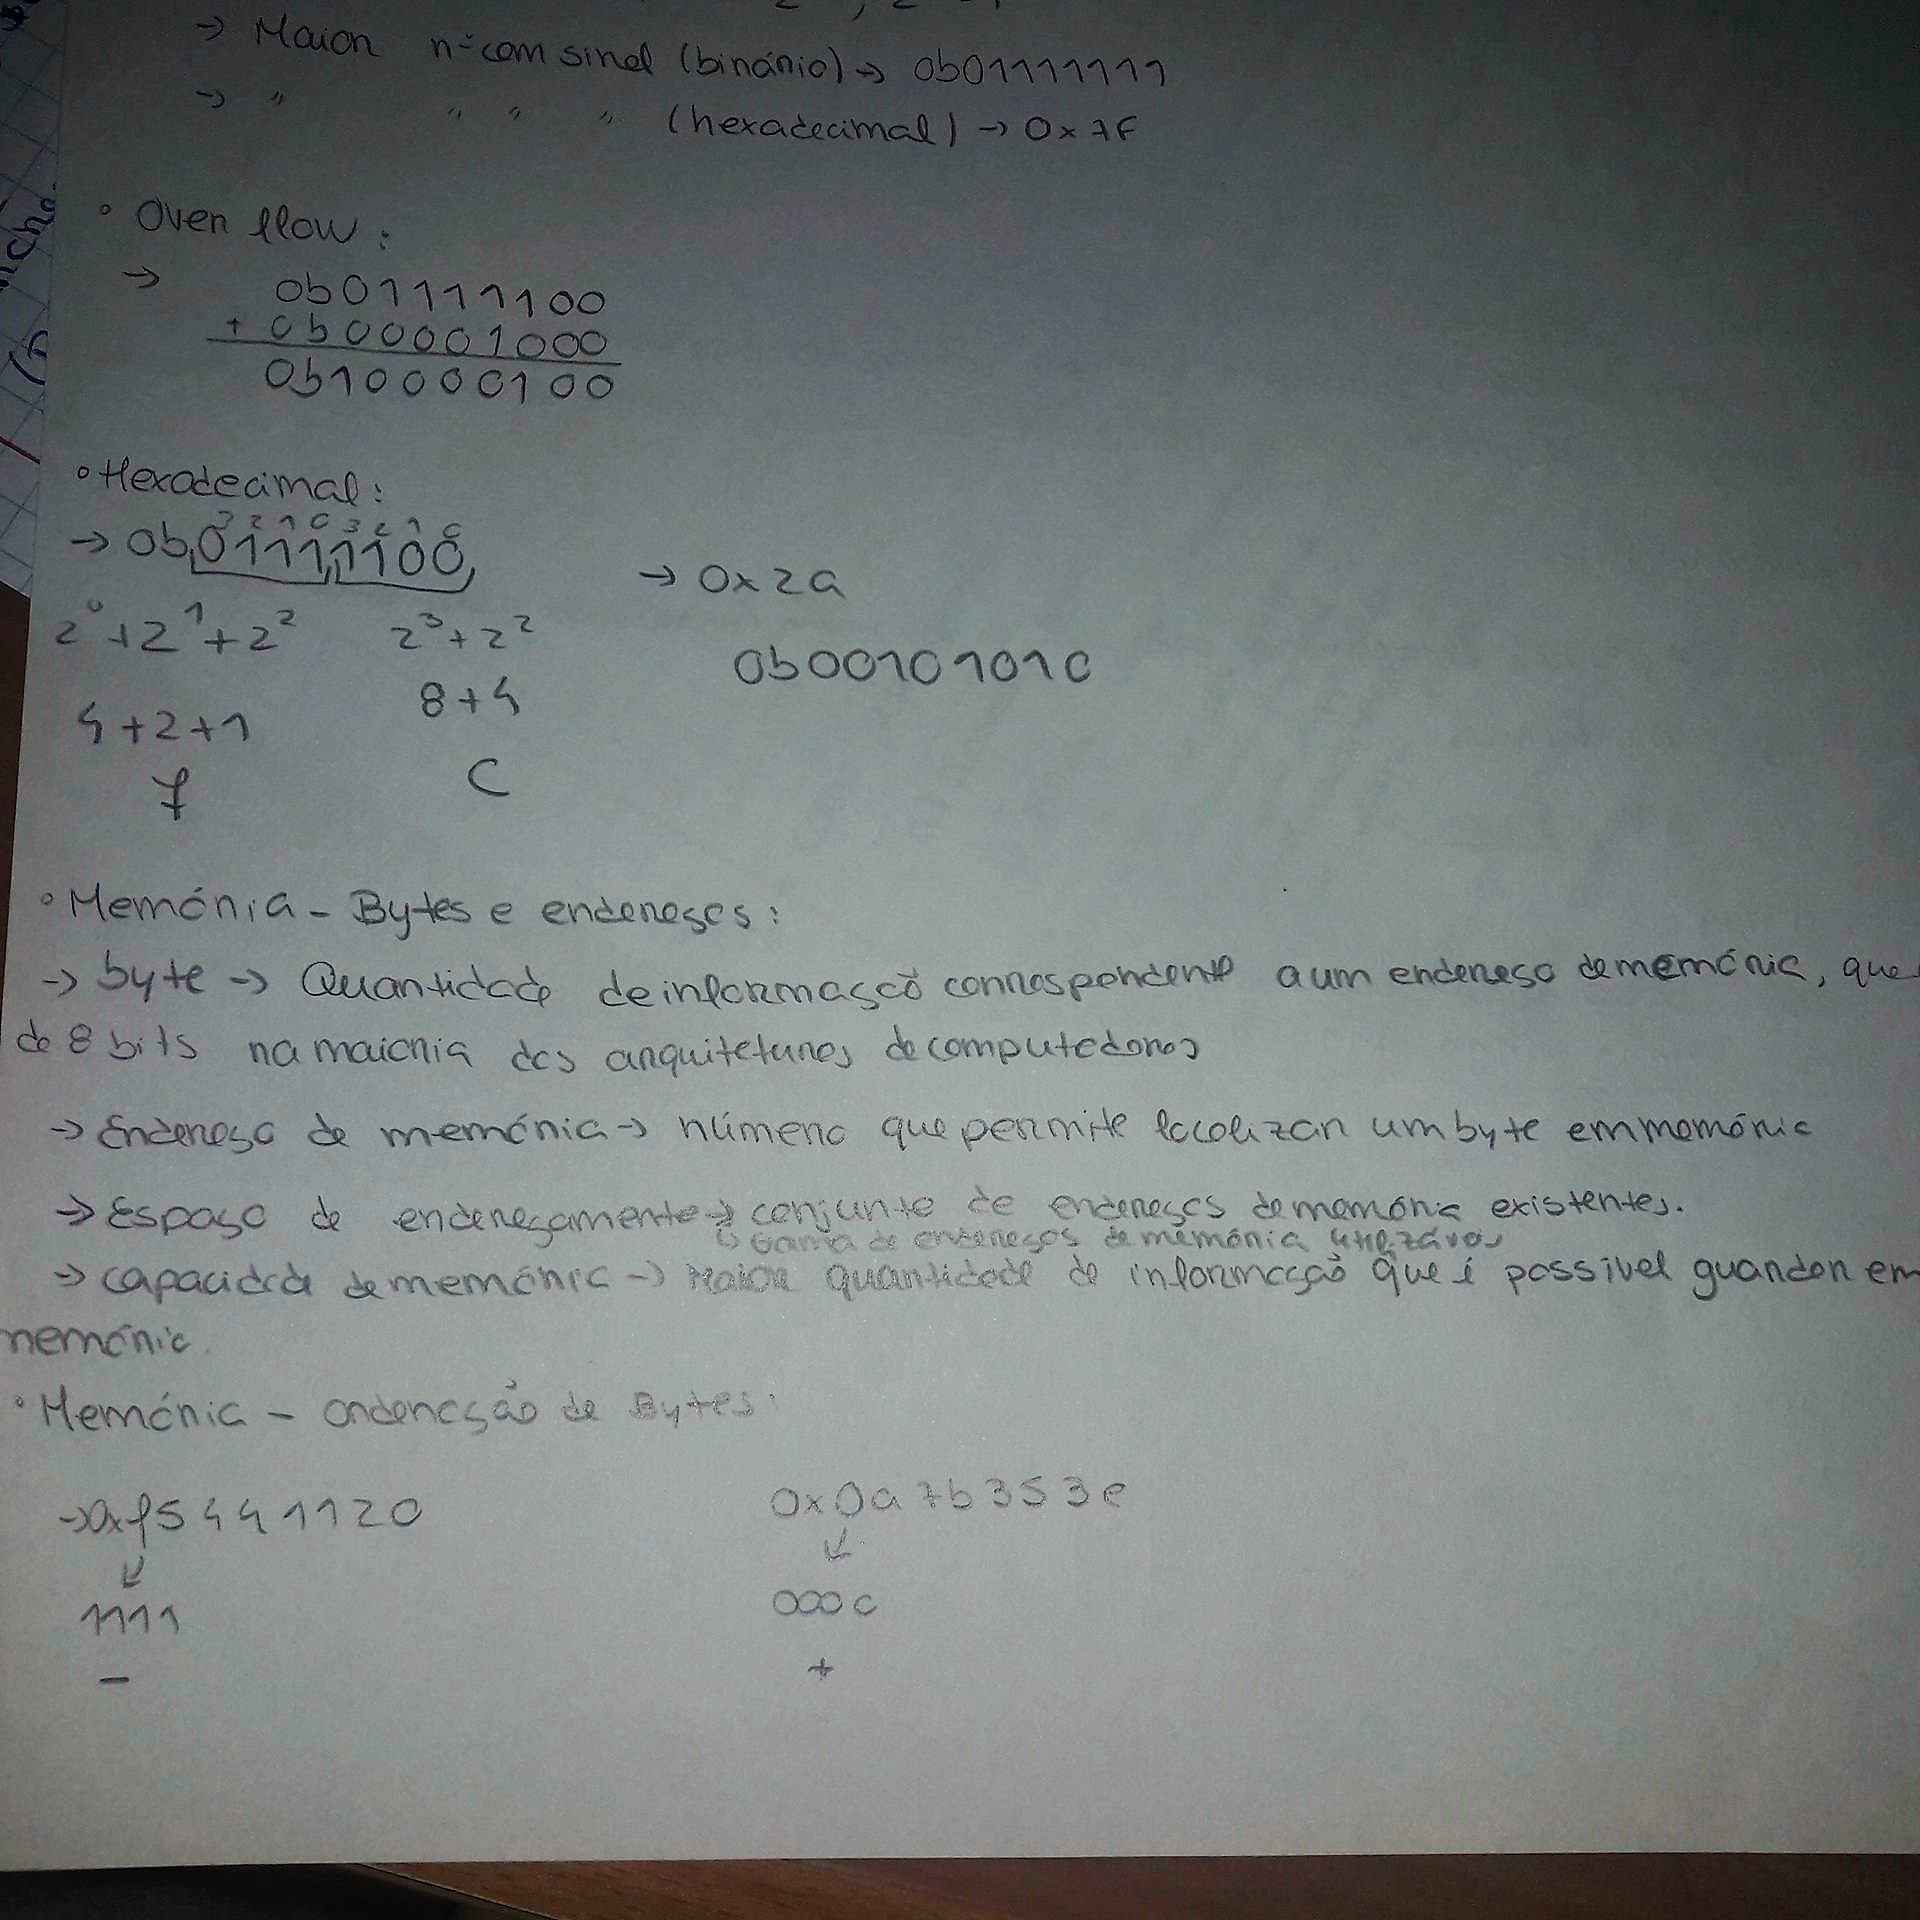 → Maior nº com sinal (binário) → 0b01111111
→ " " " " (hexadecimal) → 0x7F
° Over flow:
→ 0b01111100
+ 0b00001000
0b10000100
° Hexadecimal:
3 2 1 0 3 2 1 0
→ 0b01111100 → 0x2a
2⁰+2¹+2² 2³+2² 0b00101010
4+2+1 8+4
7 C
° Memória - Bytes e endereços:
→ byte → Quantidade de informação correspondente a um endereço de memória, que
de 8 bits na maioria das arquiteturas de computadores
→ Endereço de memória → número que permite localizar um byte em memória
→ Espaço de endereçamento → conjunto de endereços de memória existentes.
↳ Gama de endereços de memória utilizáveis
→ capacidade de memória → Maior quantidade de informação que é possivel guardar em
memória.
° Memória - ordenação de Bytes:
→ 0xf5441120 0x0a7b353e
↙ ↙
1111 0000
- +